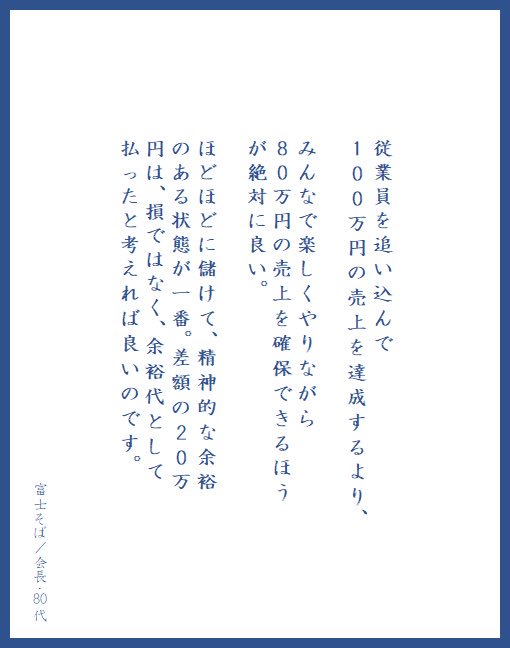 従業員を追い込んで
１００万円の売上を達成するより、
みんなで楽しくやりながら
８０万円の売上を確保できるほう
が絶対に良い。
ほどほどに儲けて、精神的な余裕
のある状態が一番。差額の２０万
円は、損ではなく、余裕代として
払ったと考えれば良いのです。
富士そば／会長・80代